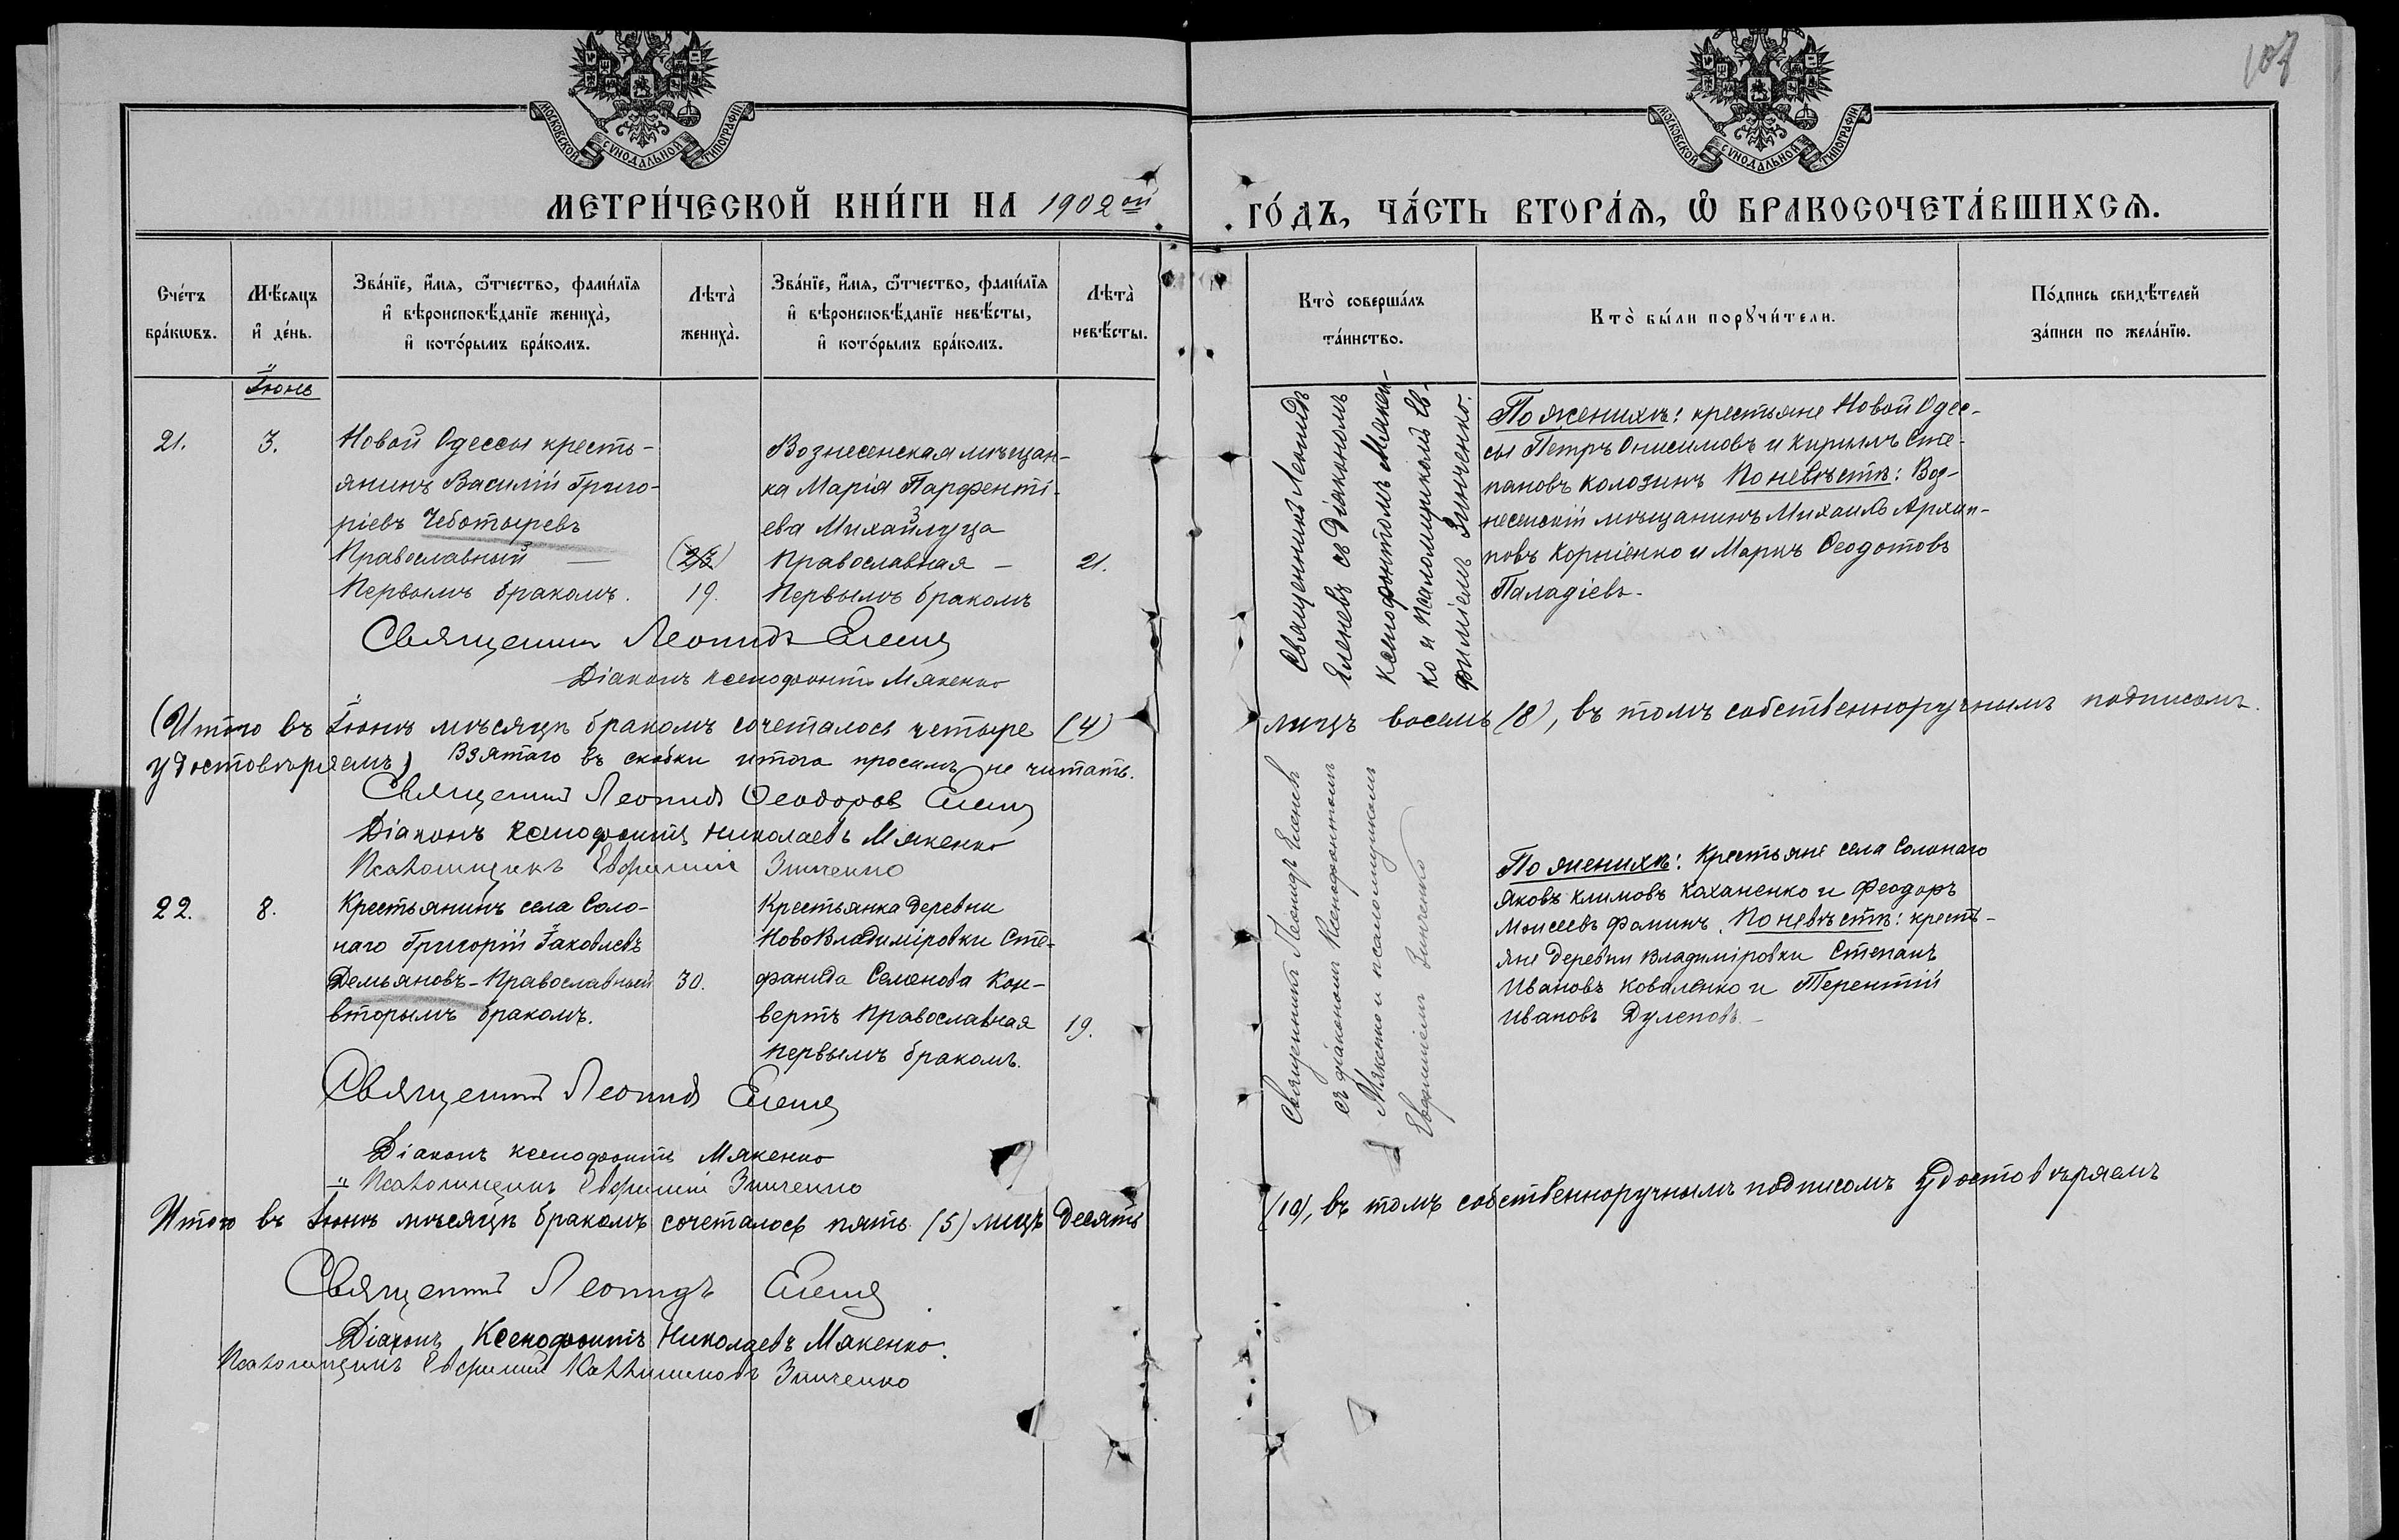 107
МОСКОВСКОЙ СѴНОДАЛЬНОЙ ТИПОГРАФІИ
МОСКОВСКОЙ СѴНОДАЛЬНОЙ ТИПОГРАФІИ
МЕТРИ́ЧЕСКОЙ КНИ́ГИ НА 1902ой
ГО́ДЪ, ЧА́СТЬ ВТОРА́Ѧ, Ѽ БРАКОСОЧЕТА́ВШИХСѦ.
Сче́тъ
бра́кѡвъ.
Мѣ́сяцъ
и҆ де́нь.
Зва́нїе, и҆́мя, ѻ҆́тчество, фами́лїя
и҆ вѣроисповѣ́данїе жениха̀,
и҆ кото́рымъ бра́комъ.
Лѣта̀
жениха̀.
Зва́нїе, и҆́мя, ѻ҆́тчество, фами́лїя
и҆ вѣроисповѣ́данїе невѣ́сты,
и҆ кото́рымъ бра́комъ.
Лѣта̀
невѣ́сты.
Кто̀ соверша́лъ
та́инство.
Кто̀ бы́ли порꙋчи́тели.
По́дпись свидѣ́телей
за́писи по жела́нїю.
Іюнь
21.
3.
Новой Одессы кресть-
янинъ Василій Григо-
ріевъ Чеботыревъ
Православный —
Первымъ бракомъ.
(23)
19.
Вознесенская мѣщан-
ка Марія Парфенті-
ева Михайлуца
Православная —
Первымъ бракомъ
21.
Священникъ Леонидъ
Еленевъ съ Діакономъ
Ксенофонтомъ Макен-
ко и Псаломщикомъ Ев-
фиміемъ Зинченко.
По женихѣ: крестьяне Новой Одес-
сы Петръ Онисимовъ и Кириллъ Сте-
пановъ Колозинъ По невѣстѣ: Воз-
несенскій мѣщанинъ Михаилъ Архип-
повъ Корніенко и Маркъ Ѳеодотовъ
Паладіевъ.
Священникъ Леонидъ Еленевъ
Діаконъ Ксенофонтъ Макенко
(Итого въ Іюнѣ мѣсяцѣ бракомъ сочеталось четыре (4)
лицъ восемь (8), въ томъ собственноручнымъ подписомъ
удостовѣряемъ) Взятаго въ скобки итога просимъ не читать.
Священникъ Леонидъ Ѳеодоровъ Еленевъ
Діаконъ Ксенофонтъ Николаевъ Макенко
Псаломщикъ Евфимій Зинченко
22.
8.
Крестьянинъ села Соло-
наго Григорій Іаковлевъ
Демьяновъ - Православный
вторымъ бракомъ.
30.
Крестьянка деревни
НовоВладиміровки Сте-
фанида Семенова Кон-
вертъ Православная
первымъ бракомъ.
19.
Священникъ Леонидъ Еленевъ
съ діакономъ Ксенофонтомъ
Макенко и псаломщикомъ
Евфиміемъ Зинченко
По женихѣ: Крестьяне села Солонаго
Яковъ Климовъ Коханенко и Феодоръ
Моисеевъ Фоминъ. По невѣстѣ: кресть-
яне деревни Владиміровки Степанъ
Ивановъ Коваленко и Терентій
Ивановъ Дулеповъ.
Священникъ Леонидъ Еленевъ
Діаконъ Ксенофонтъ Макенко
Псаломщикъ Евфимій Зинченко
Итого въ Іюнѣ мѣсяцѣ бракомъ сочеталось пять (5) лицъ десять
(10), въ томъ собственноручнымъ подписомъ удостовѣряемъ
Священникъ Леонидъ Еленевъ
Діаконъ Ксенофонтъ Николаевъ Макенко.
Псаломщикъ Евфимій Каллиниковъ Зинченко